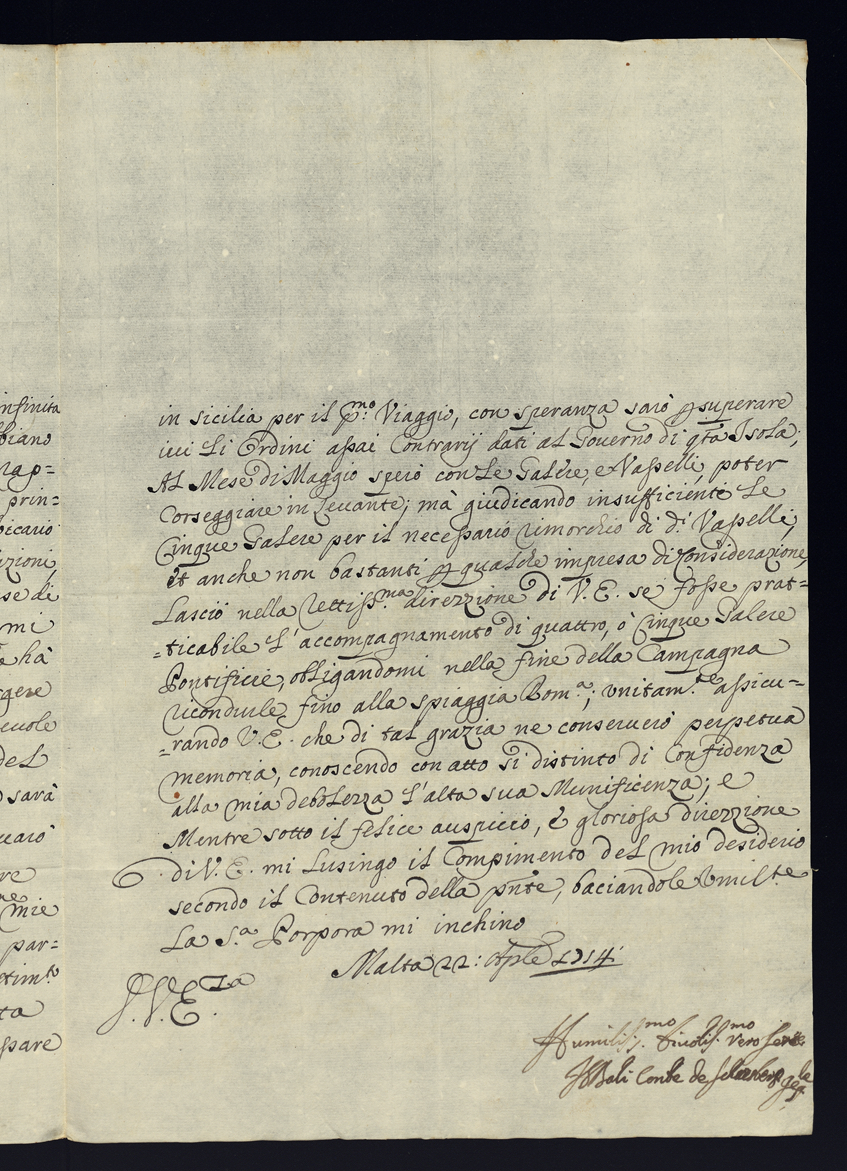 nfinita
biano
rap=
prin=
bicario
izioni,
se di
mi
e hà
gere
euole
del
sarà
uarò
re
mie
par=
stim.to
ta
spare
in Sicilia per il p.mo Viaggio, con speranza sarò p superare
iui li Ordini assai Contrarij dati al Gouerno di q.ta Isola;
Al Mese di Maggio sperò con Le Galere, e Vasselli, poter
Corseggiare in Leuante; mà giudicando insufficiente Le
Cinque Galere per il necessario rimorchio di d.i Vasselli,
et anche non bastanti p qualche impresa di Considerazione,
Lasciò nella rettiss.ma direzzione di V. E. se fosse prat=
=ticabile L'accompagnamento di quattro, ò Cinque Galere
Pontificie, obligandomi nella fine della Campagna
ricondurle fino alla spiaggia Rom.a; vnitam.te assicu=
=rando V. E. che di tal grazia ne conseruerò perpetua
memoria, conoscendo con atto si distinto di Confidenza
alla mia debolezza L'alta sua Munificenza; e
Mentre sotto il felice auspicio, è gloriosa direzzione
di V. E. mi Lusingo il Compimento del mio desiderio
secondo il Contenuto della pnte, baciandole Vmilte
La S.a Porpora mi inchino
Malta 22: Aple 1714
S. V. E.za
Humiliss.mo Diuotiss.mo vero Serre
Il Bali Conte de